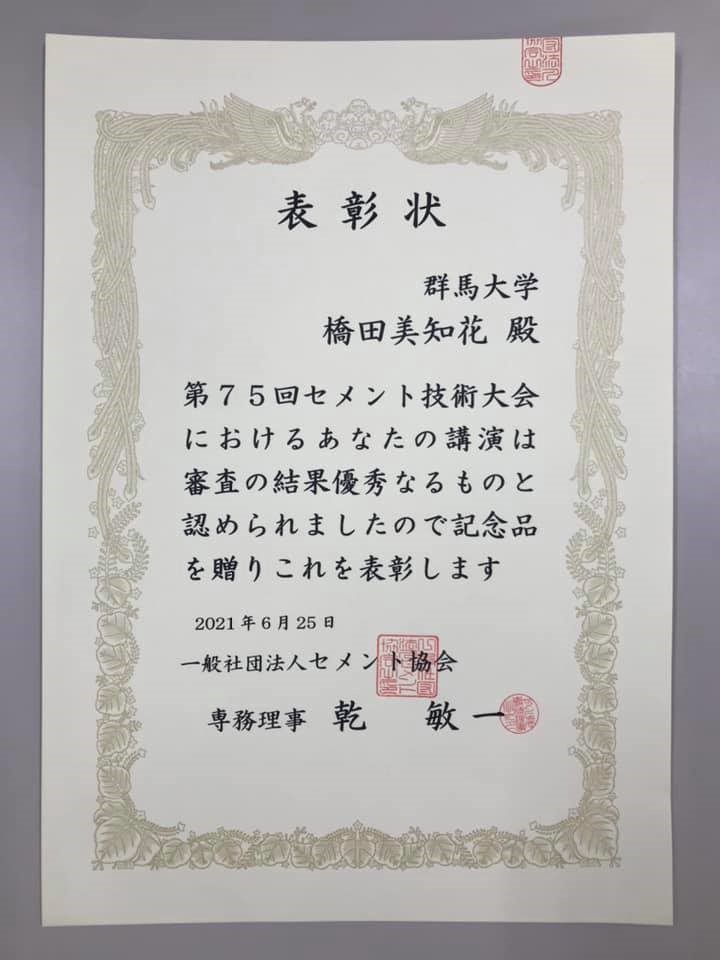 表彰状
群馬大学
橋田美知花 殿
第７５回セメント技術大会
におけるあなたの講演は
審査の結果優秀なるものと
認められましたので記念品
を贈りこれを表彰します
2021年6月25日
一般社団法人セメント協会
専務理事 乾 敏一